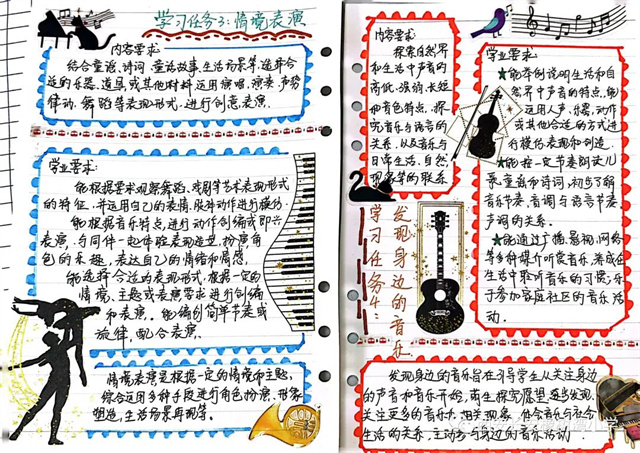 学习任务3:情境表演
内容要求:
结合童谣、诗词、童话故事、生活场景等,选择合
适的乐器、道具或其他材料运用演唱、演奏、声势
律动、舞蹈等表现形式,进行创意表演.
学业要求:
能根据要求观察舞蹈、戏剧等艺术表现形式
的特征,并运用自己的表情、肢体动作进行模仿.
能根据音乐特点,进行动作创编或即兴
表演,与同伴一起体验表现造型,扮演角
色的乐趣,表达自己的情绪和情感.
能选择合适的表现形式,根据一定的
情境、主题或表演要求进行创编
和表演.能编创简单节奏或
旋律,配合表演.
情境表演是根据一定的情境和主题,
综合运用多种手段进行角色扮演、形象
塑造,生活场景再现等.
内容要求:
探索自然界
和生活中声音的
高低、强弱、长短
和音色特点,探
究音乐与语言的
关系,以及音乐与
日常生活、自然
现象等的联系
学业要求:
★能举例说明生活和自
然界中声音的特点,能
运用人声、乐器、动作
或其他合适的方式进
行模仿表现和创造.
★能按一定节奏朗读儿
歌、童谣和诗词,初步了解
音乐节奏、音调与语言节奏
声调的关系.
★能通过广播、影视、网络
等多种媒介听赏音乐,养成在
生活中聆听音乐的习惯,乐
于参加家庭社区的音乐活
动.
学习任务4:
发现身边的音乐
发现身边的音乐旨在引导学生从关注身边
的声音和音乐开始,萌生探究愿望,逐步发现、
关注更多的音乐相关现象,体会音乐与社会
生活的关系,主动参与身边的音乐活动.